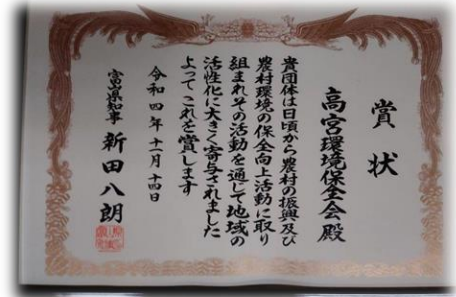 賞状
高宮環境保全会殿
貴団体は日頃から農村の振興及び
農村環境の保全向上活動に取り
組まれその活動を通して地域の
活性化に大きく寄与されました
よってこれを賞します
令和四年十一月十四日
富山県知事 新田八朗